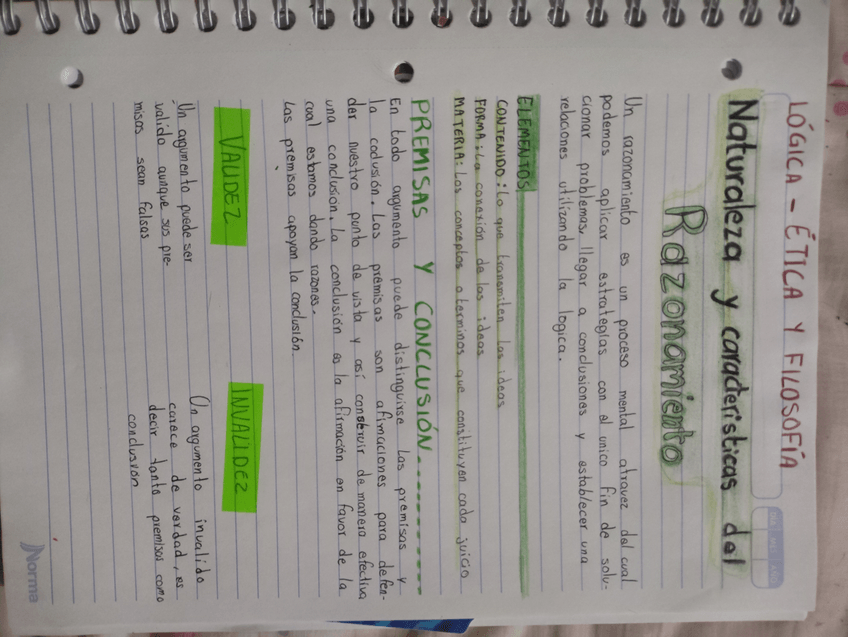 LÓGICA - ÉTICA Y FILOSOFÍA
DIA MES AÑO
Naturaleza y características del
Razonamiento
Un razonamiento es un proceso mental atravez del cual
podemos aplicar estrategias con el unico fin de solu-
cionar problemas, llegar a conclusiones y establecer una
relaciones utilizando la logica.
ELEMENTOS
CONTENIDO: Lo que transmiten las ideas
FORMA: La conexión de las ideas
MATERIA: Los conceptos o terminos que constituyen cada juicio
PREMISAS Y CONCLUSIÓN..........
En todo argumento puede distinguirse las premisas y
la coclusión. Las premisas son afimaciones para defen-
der nuestro punto de vista y así construir de manera efectiva
una conclusión. La conclusión es la afirmación en favor de la
cual estamos dando razones.
Las premisas apoyan la conclusión.
VALIDEZ
Un argumento puede ser
valido aunque sus pre-
misas sean falsas
INVALIDEZ
Un argumento invalido
carece de verdad, es
decir tanto premisas como
conclusión
Norma